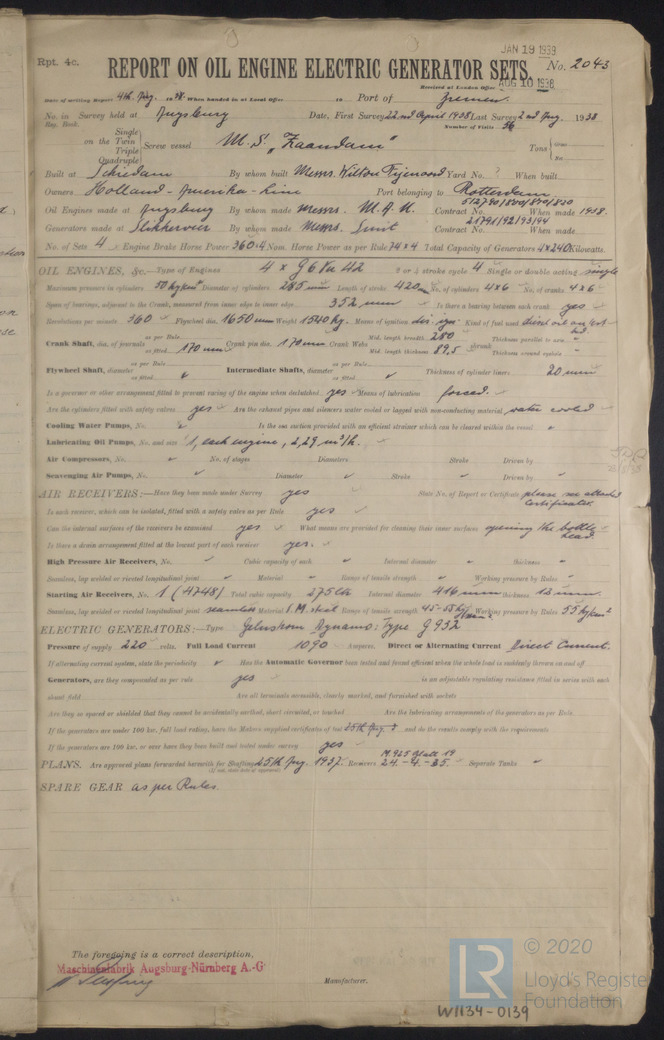 JAN 19 1939
Rpt. 4c.
REPORT ON OIL ENGINE ELECTRIC GENERATOR SETS.
No. 2043
Received at London Office AUG 10 1938
Date of writing Report 4th Aug. 1938. When handed in at Local Office 19 Port of Bremen
No. in Reg. Book. Survey held at Augsburg Date, First Survey 22nd April 1938 Last Survey 2nd Aug. 1938
Number of Visits 36
on the Single Twin Triple Quadruple Screw vessel M.S. "Zaandam" Tons
Built at Schiedam By whom built Messrs. Wilton Fijenoord Yard No. ? When built
Owners Holland-Amerika-Line Port belonging to Rotterdam
Oil Engines made at Augsburg By whom made Messrs. M.A.N. Contract No. When made 1938.
Generators made at Slikkerveer By whom made Messrs. Smit Contract No. 21791/92/93/94 When made
No. of Sets 4 Engine Brake Horse Power 360.4 Nom. Horse Power as per Rule 74x4 Total Capacity of Generators 4x240 Kilowatts.
OIL ENGINES, &c.—Type of Engines 4 x G6Vu 42 2 or 4 stroke cycle 4 Single or double acting single
Maximum pressure in cylinders 50 kg/cm² Diameter of cylinders 285 mm Length of stroke 420 mm No. of cylinders 4x6 No. of cranks 4x6
Span of bearings, adjacent to the Crank, measured from inner edge to inner edge 352 mm Is there a bearing between each crank yes
Revolutions per minute 360 Flywheel dia. 1650 mm Weight 1540 kg. Means of ignition Kind of fuel used
Crank Shaft, dia. of journals as per Rule as fitted 170 mm Crank pin dia. 170 mm Crank Webs Mid. length breadth 280 Mid. length thickness 89,5 Thickness parallel to axis Thickness around eyehole
Flywheel Shaft, diameter as per Rule as fitted Intermediate Shafts, diameter as per Rule as fitted Thickness of cylinder liners 20 mm
Is a governor or other arrangement fitted to prevent racing of the engine when declutched yes Means of lubrication forced.
Are the cylinders fitted with safety valves yes Are the exhaust pipes and silencers water cooled or lagged with non-conducting material water cooled
Cooling Water Pumps, No. Is the sea suction provided with an efficient strainer which can be cleared within the vessel
Lubricating Oil Pumps, No. and size 1, each engine, 2,29 m³/h.
Air Compressors, No. No. of stages Diameters Stroke Driven by
Scavenging Air Pumps, No. Diameter Stroke Driven by
AIR RECEIVERS:—Have they been made under Survey yes State No. of Report or Certificate please see attached
Certificates.
Is each receiver, which can be isolated, fitted with a safety valve as per Rule yes
Can the internal surfaces of the receivers be examined yes What means are provided for cleaning their inner surfaces opening the bottle
head.
Is there a drain arrangement fitted at the lowest part of each receiver yes.
High Pressure Air Receivers, No. Cubic capacity of each Internal diameter thickness
Seamless, lap welded or riveted longitudinal joint Material Range of tensile strength Working pressure by Rules
Starting Air Receivers, No. 1 (4748) Total cubic capacity 275 ltr Internal diameter 416 mm thickness 13 mm
Seamless, lap welded or riveted longitudinal joint seamless Material S.M. steel Range of tensile strength 45-55 kg/mm² Working pressure by Rules 35 kg/cm²
ELECTRIC GENERATORS:—Type Dynamo: Type G 932
Pressure of supply 220 volts. Full Load Current 1090 Amperes. Direct or Alternating Current Direct Current.
If alternating current system, state the periodicity Has the Automatic Governor been tested and found efficient when the whole load is suddenly thrown on and off
Generators, are they compounded as per rule yes is an adjustable regulating resistance fitted in series with each
shunt field Are all terminals accessible, clearly marked, and furnished with sockets
Are they so spaced or shielded that they cannot be accidentally earthed, short circuited, or touched Are the lubricating arrangements of the generators as per Rule
If the generators are under 100 kw. full load rating, have the Makers supplied certificates of test and do the results comply with the requirements
If the generators are 100 kw. or over have they been built and tested under survey yes
PLANS. Are approved plans forwarded herewith for Shafting 25th Aug. 1937. Receivers 24.-4.-35. Separate Tanks
(If not, state date of approval)
SPARE GEAR as per Rules.
The foregoing is a correct description,
Maschinenfabrik Augsburg-Nürnberg A.-G
Manufacturer.
LR © 2020
Lloyd's Register
Foundation
W1134-0139